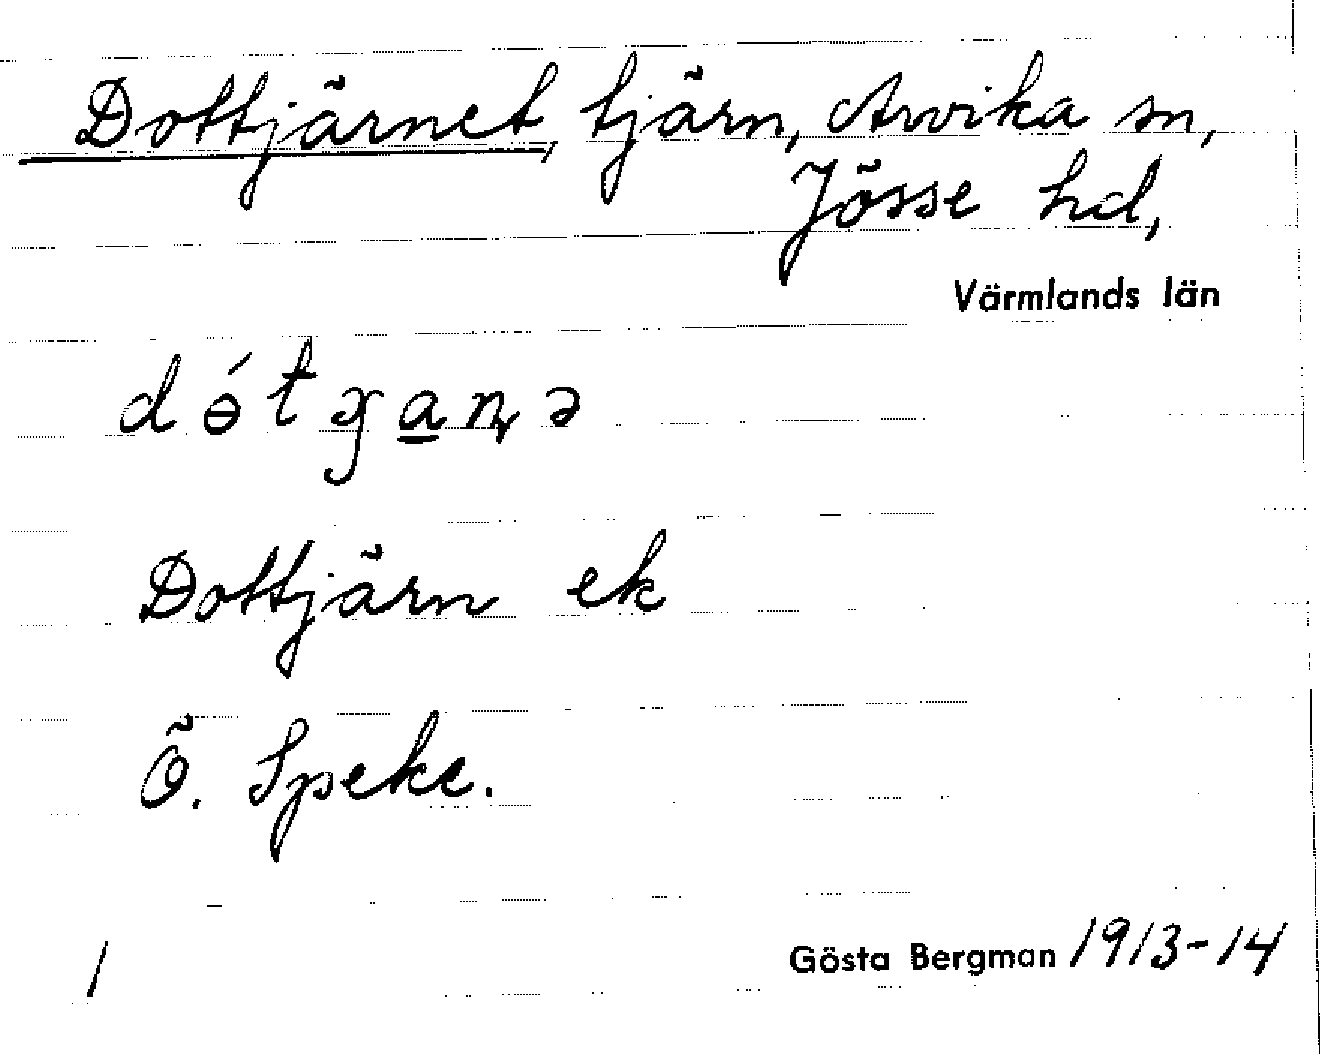 Dottjärnet, tjärn, Arvika sn,
Jösse hd,
Värmlands län
dɵ́tʂa̲ɳə
Dottjärn ek
Ö. Speke.
Gösta Bergman 1913-14
1